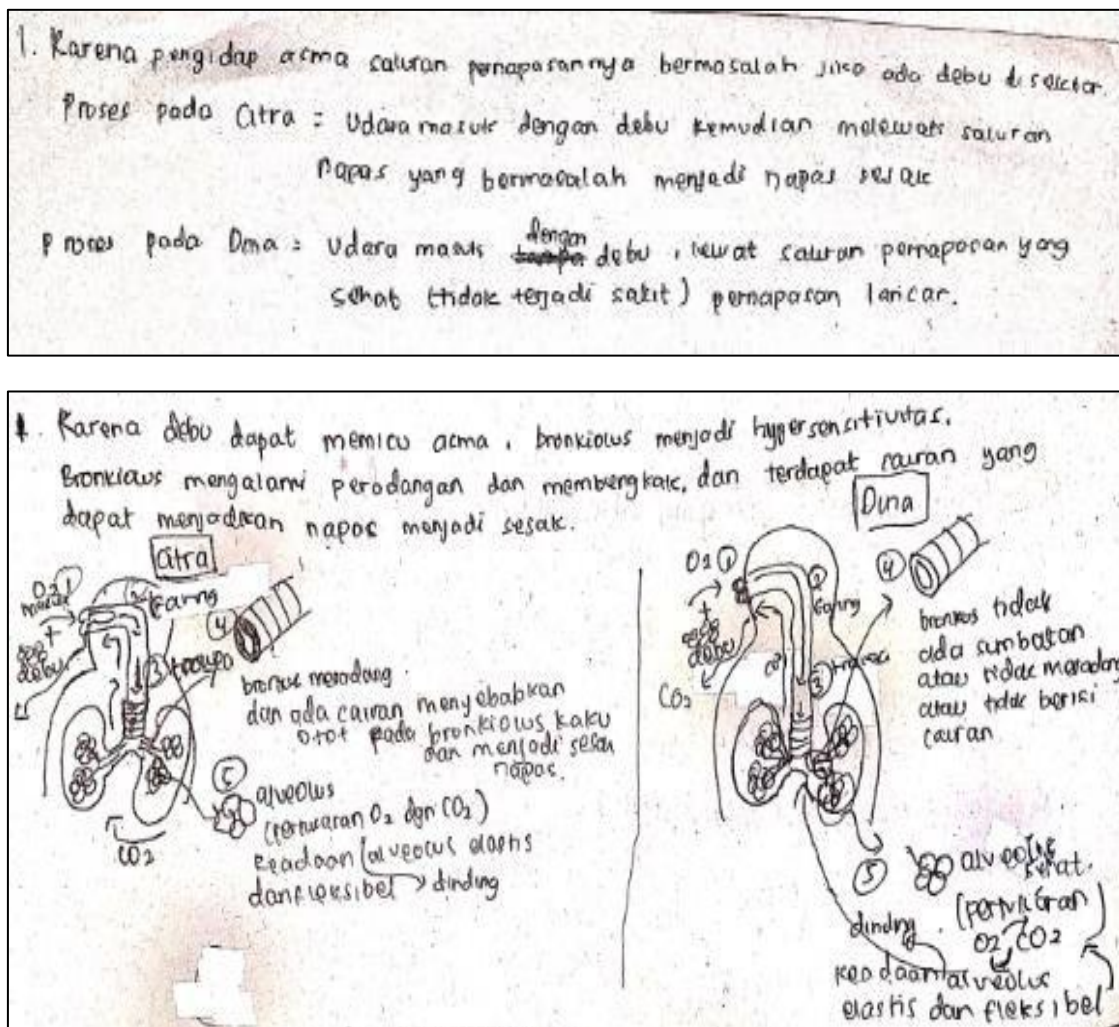 1. Karena pengidap asma saluran pernapasannya bermasalah jika ada debu disekitar.
Proses pada Citra : Udara masuk dengan debu kemudian melewati saluran
napas yang bermasalah menjadi napas sesak
Proses pada Dina : Udara masuk dengan debu, lewat saluran pernapasan yang
sehat (tidak terjadi sakit) pernapasan lancar.
1. Karena debu dapat memicu asma, bronkiolus menjadi hypersensitivitas.
Bronkiolus mengalami peradangan dan membengkak, dan terdapat cairan yang
dapat menjadikan napas menjadi sesak.
Citra
O2 1
masuk
+
debu
2 Faring
3 trakea
4
bronkus meradang
dan ada cairan menyebabkan
otot pada bronkiolus kaku
dan menjadi sesak
napas.
5
alveolus
(pertukaran O2 dgn CO2)
keadaan alveolus elastis
dan fleksibel → dinding
CO2
Dina
O2 1
+
debu
CO2
2
Faring
3 trakea
4
bronkus tidak
ada sumbatan
atau tidak meradang
atau tidak berisi
cairan
5
alveolus
sehat.
(pertukaran)
O2 CO2
dinding
keadaan alveolus
elastis dan fleksibel